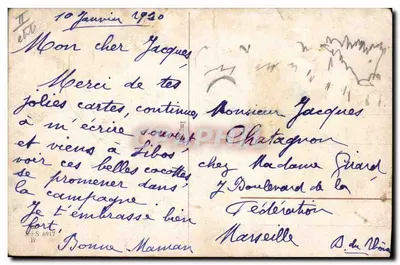 10 Janvier 1920
Mon cher Jacques
Merci de tes
jolies cartes, continue
à m'écrire souvent
et viens à Libos
voir ces belles cocottes
se promener dans
la campagne.
Je t'embrasse bien
fort,
Bonne Maman
Monsieur Jacques
Chatagnon
chez Madame Girard
7 Boulevard de la
Fédération
Marseille
B. du Rhône